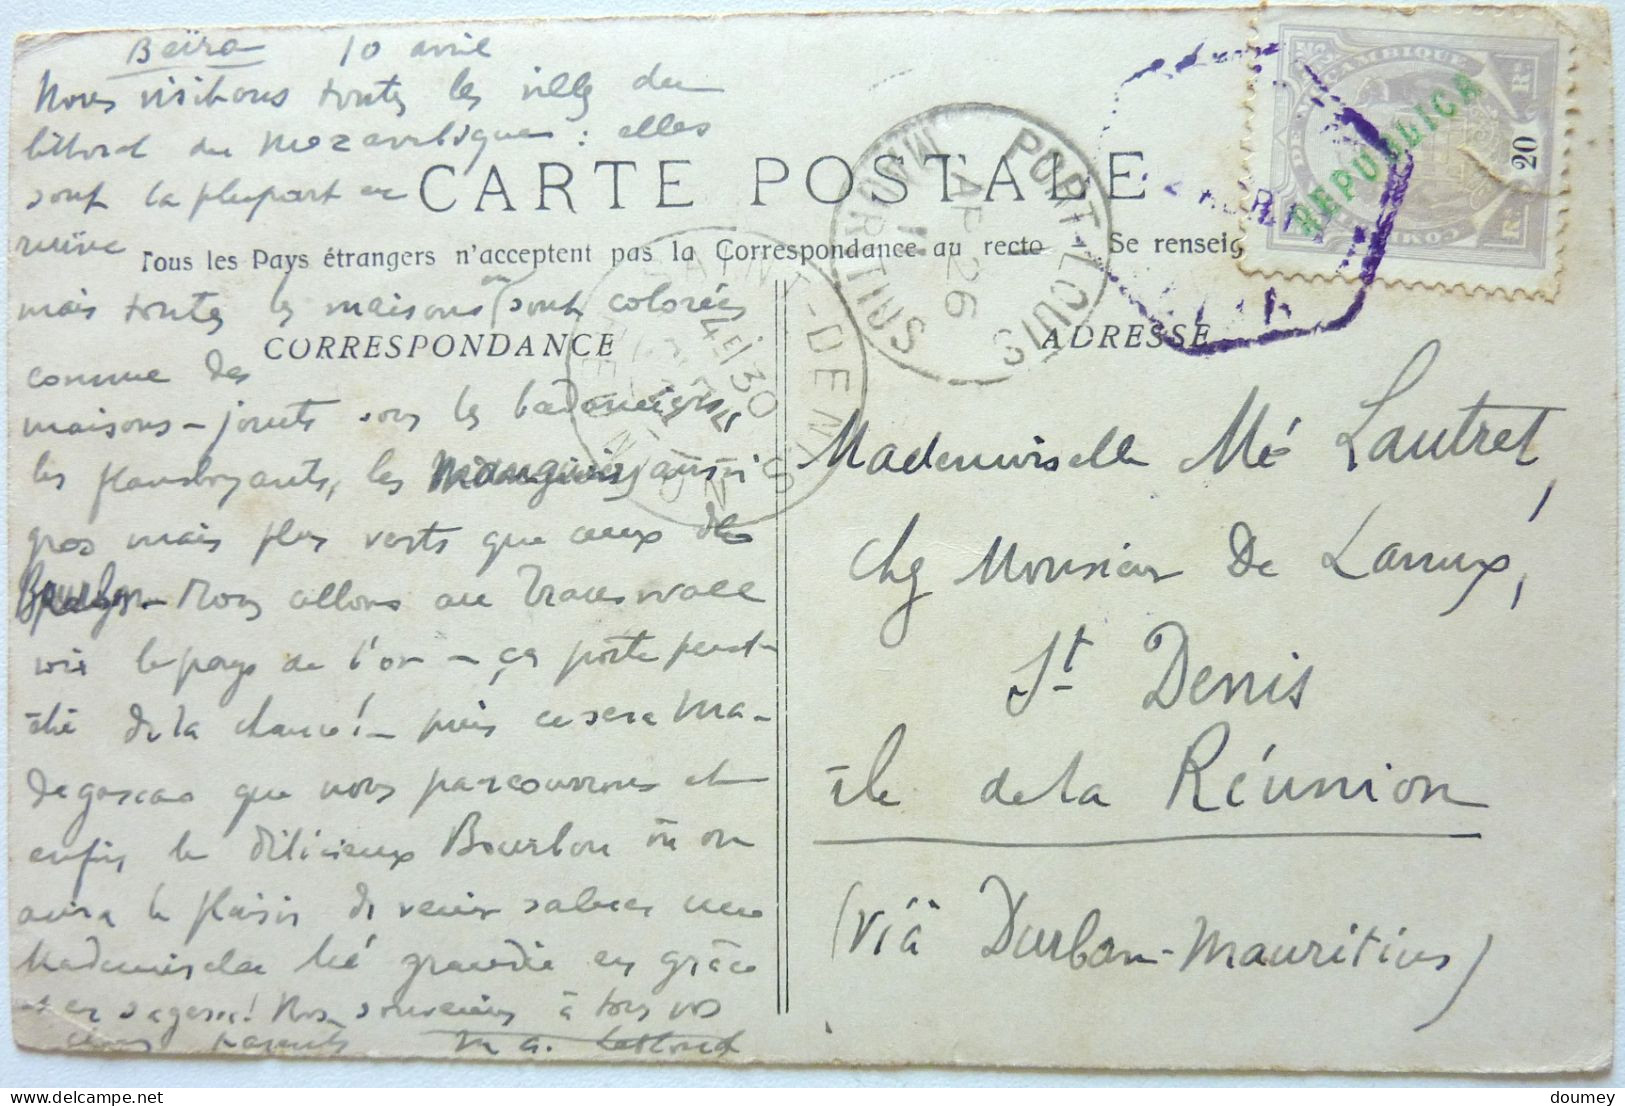 Beïra 10 avril
Nous visitons toutes les villes du
littoral du Mozambique : elles
sont la plupart en
ruine
mais toutes les maisons sont colorées
comme des
maisons-jouets sous les badamiers
les flamboyants, les manguiers aussi
gros mais plus verts que ceux de
Bourbon - Nous allons au Transwall
voir le pays de l'or - ça porte peut-
être de la chance! - puis ce sera Ma-
dagascar que nous parcourrons et
enfin le délicieux Bourbon où on
aura le plaisir de venir saluer une
Mademoiselle Mé grandie en grâce
et en sagesse! Nos souvenirs à tous vos
chers parents M. A. Leblond
CARTE POSTALE
Tous les Pays étrangers n'acceptent pas la Correspondance au recto — Se renseig
CORRESPONDANCE
ADRESSE
PORT-LOUIS
MAURITIUS
26
SAINT-DENIS
REUNION
14/30
MOÇAMBIQUE
COMP
DE
REPUBLICA
20
Rs
Rs
Mademoiselle Mé Lautret,
chez Monsieur De Lanux,
St Denis
île de la Réunion
(viâ Durban-Mauritius)
doumey